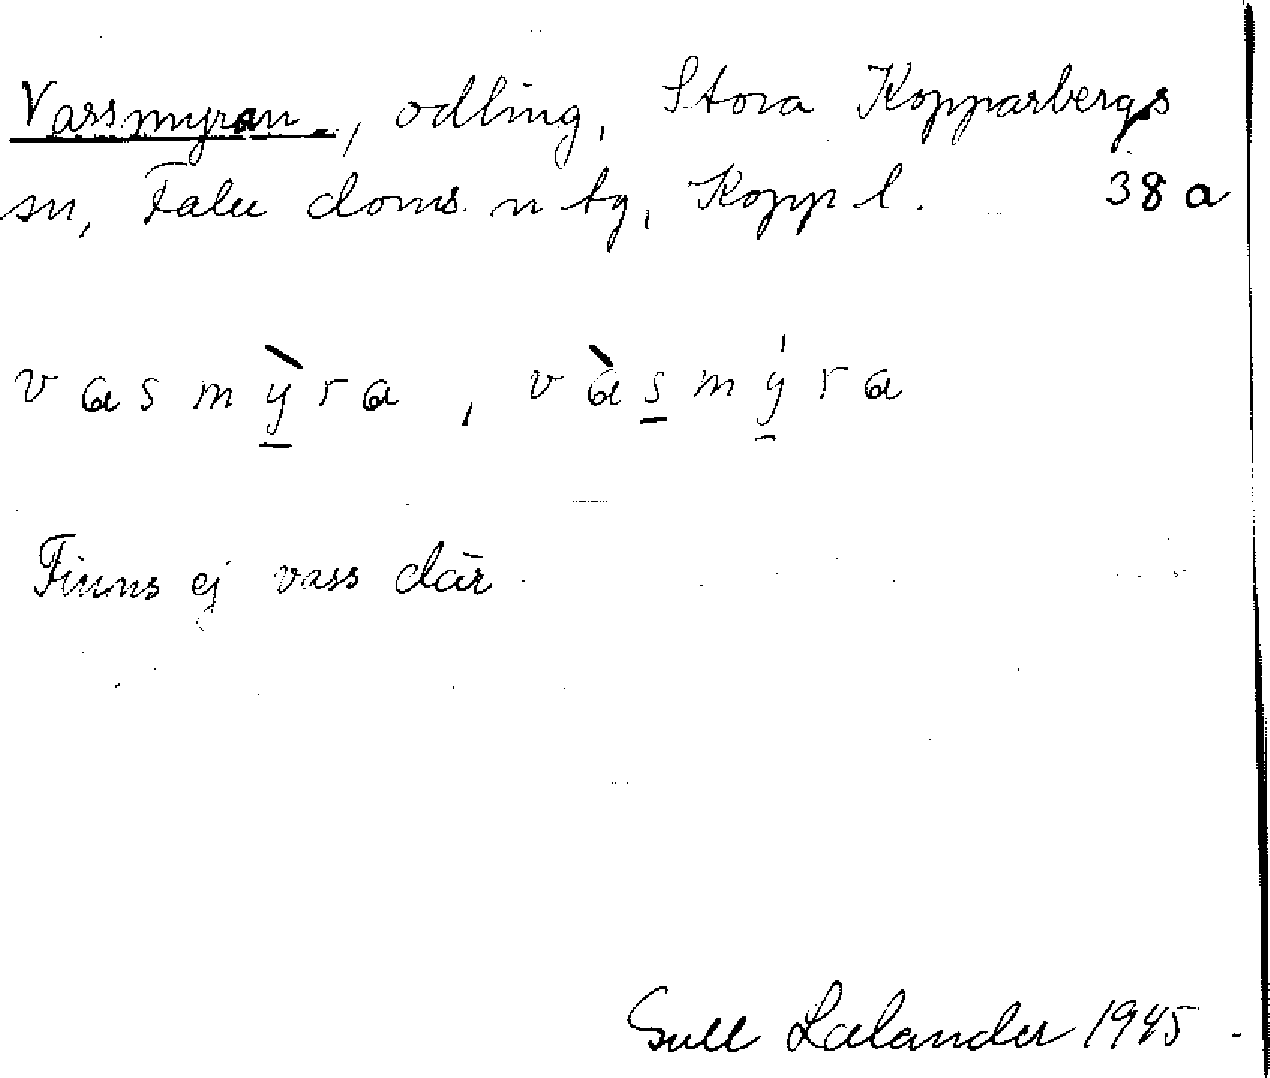 Varssmyran, odling, Stora Kopparbergs
sn, Falu doms. n tg, Kopp l. 38 a
v a s m ỳ̠ r a , v à s̠ m ý̠ r a
Finns ej vass där.
1945